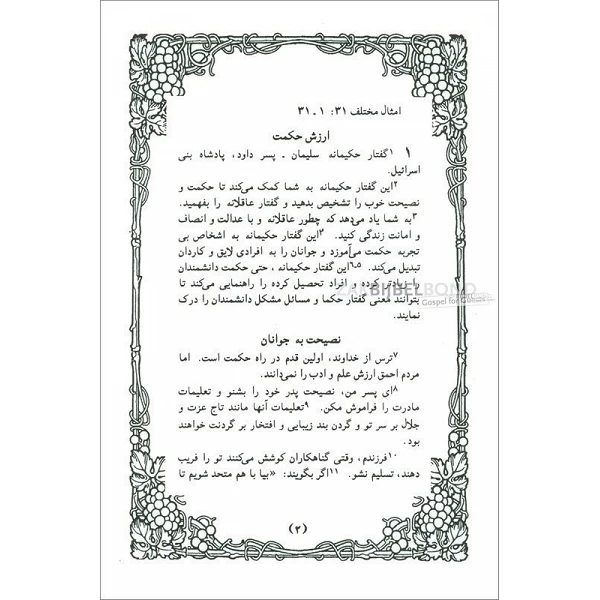 امثال مختلف ۳۱: ۱ ـ ۳۱
ارزش حکمت
۱ ۱گفتار حکیمانه سلیمان ـ پسر داود، پادشاه بنی
اسرائیل.
۲این گفتار حکیمانه به شما کمک می‌کند تا حکمت و
نصیحت خوب را تشخیص بدهید و گفتار عاقلانه را بفهمید.
۳به شما یاد می‌دهد که چطور عاقلانه و با عدالت و انصاف
و امانت زندگی کنید. ۴این گفتار حکیمانه به اشخاص بی
تجربه حکمت می‌آموزد و جوانان را به افرادی لایق و کاردان
تبدیل می‌کند. ۵-۶این گفتار حکیمانه ، حتی حکمت دانشمندان
را زیادتر کرده و افراد تحصیل کرده را راهنمایی می‌کند تا
بتوانند معنی گفتار حکما و مسائل مشکل دانشمندان را درک
نمایند.
ZAKBIJBELBOND
Gospel for Guests
نصیحت به جوانان
۷ترس از خداوند، اولین قدم در راه حکمت است. اما
مردم احمق ارزش علم و ادب را نمی‌دانند.
۸ای پسر من، نصیحت پدر خود را بشنو و تعلیمات
مادرت را فراموش مکن. ۹تعلیمات آنها مانند تاج عزت و
جلال بر سر تو و گردن بند زیبایی و افتخار بر گردنت خواهند
بود.
۱۰فرزندم، وقتی گناهکاران کوشش می‌کنند تو را فریب
دهند، تسلیم نشو. ۱۱اگر بگویند: «بیا با هم متحد شویم تا
(۲)